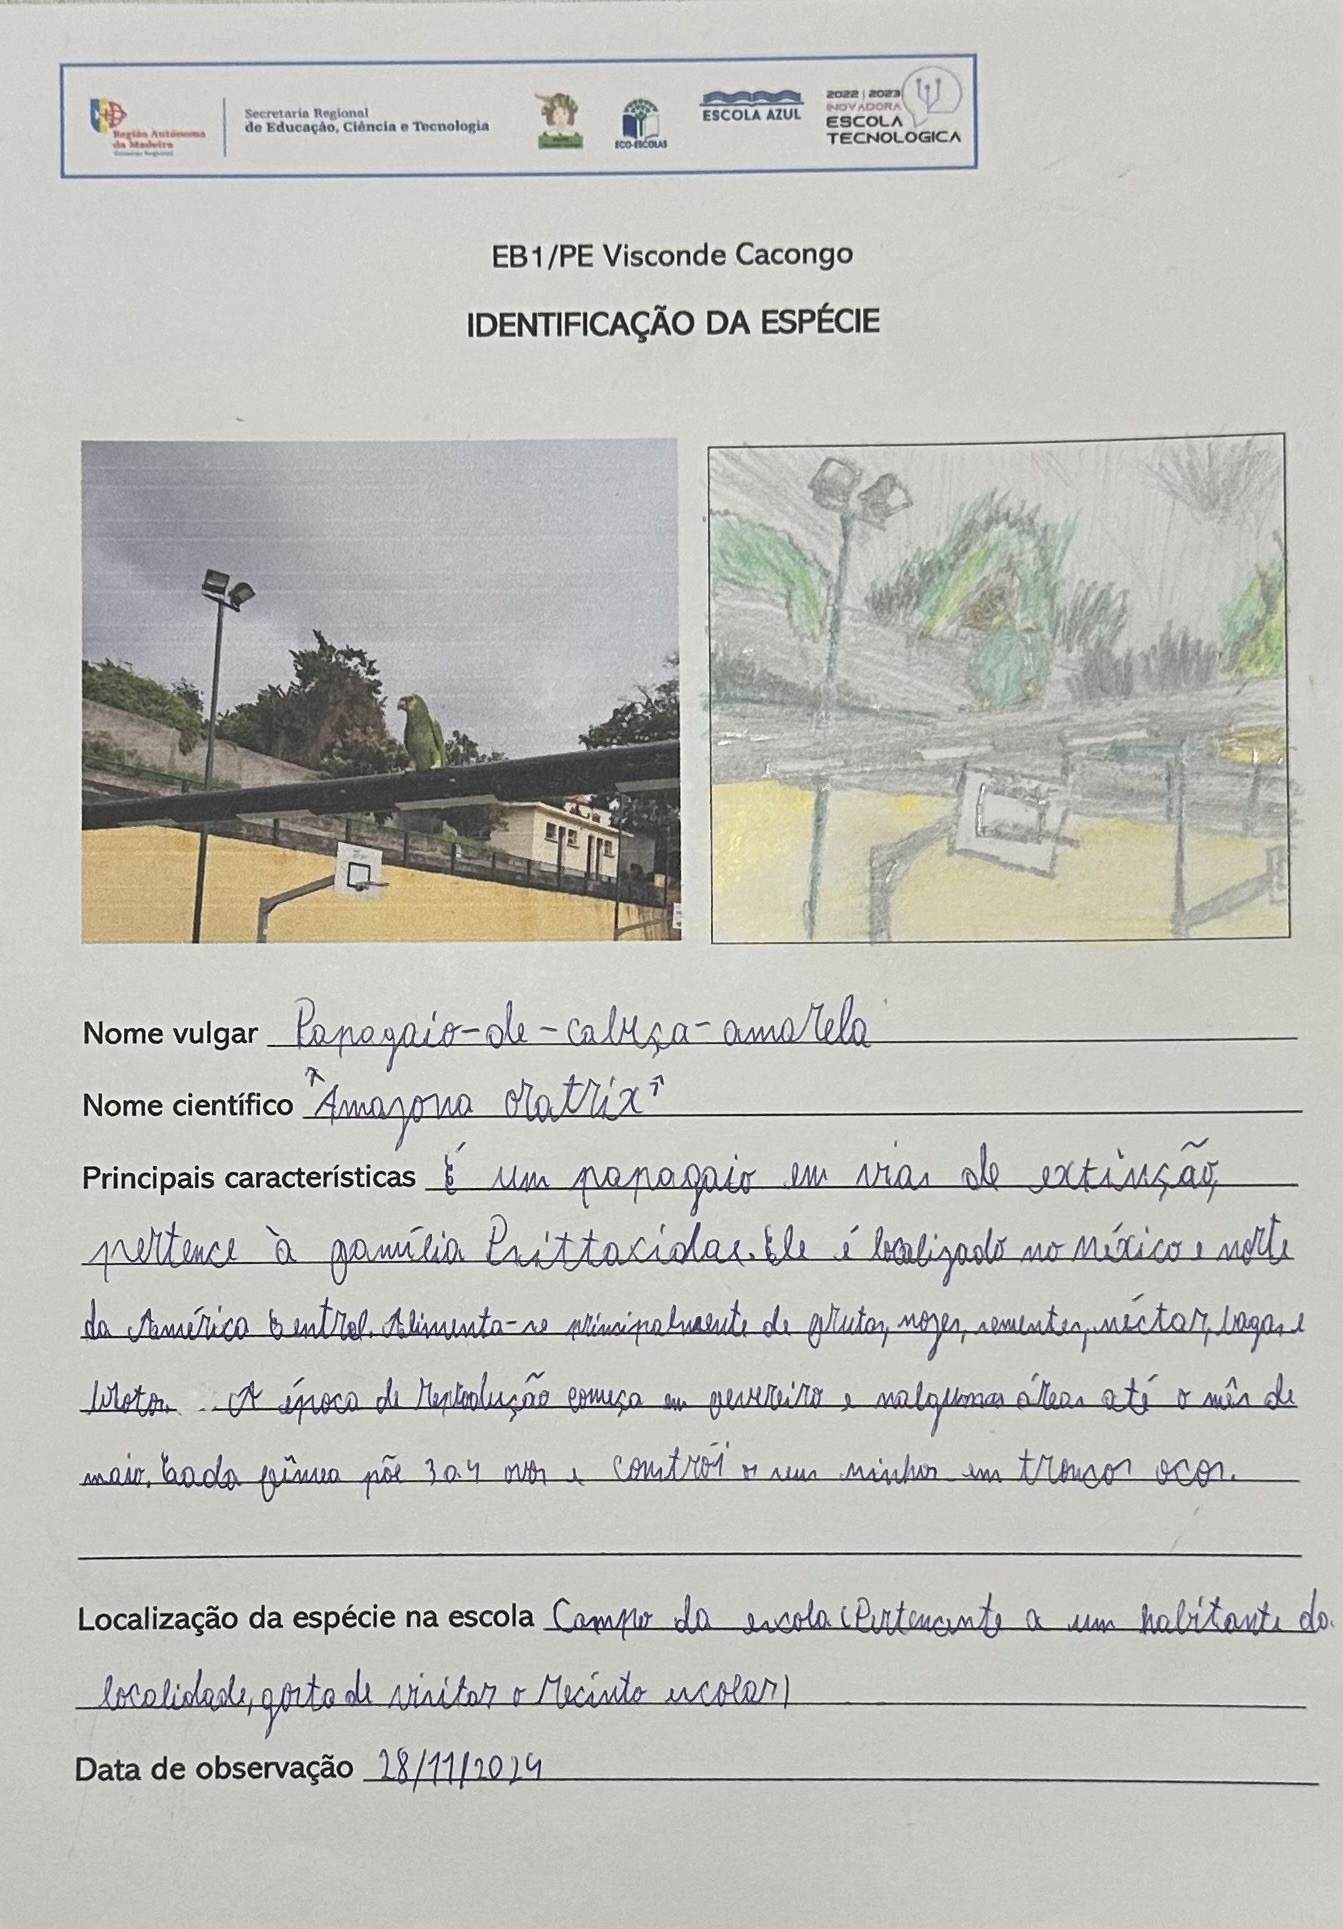 Região Autónoma
da Madeira
Governo Regional
Secretaria Regional
de Educação, Ciência e Tecnologia
ECO-ESCOLAS
ESCOLA AZUL
2022 | 2023
INOVADORA
ESCOLA
TECNOLOGICA
EB1/PE Visconde Cacongo
IDENTIFICAÇÃO DA ESPÉCIE
Nome vulgar Papagaio-de-cabeça-amarela
Nome científico "Amazona oratrix"
Principais características É um papagaio em vias de extinção,
pertence à família Psittacidae. Ele é localizado no México e norte
da América Central. Alimenta-se principalmente de frutas, nozes, sementes, néctar, bagas e
A época de reprodução começa em fevereiro e nalgumas áreas até o mês de
maio. Cada fêmea põe 3 a 4 ovos e constrói os seus ninhos em troncos ocos.
Localização da espécie na escola Campo da escola (Pertencente a um habitante da
localidade, gosta de visitar o recinto escolar)
Data de observação 28/11/2024